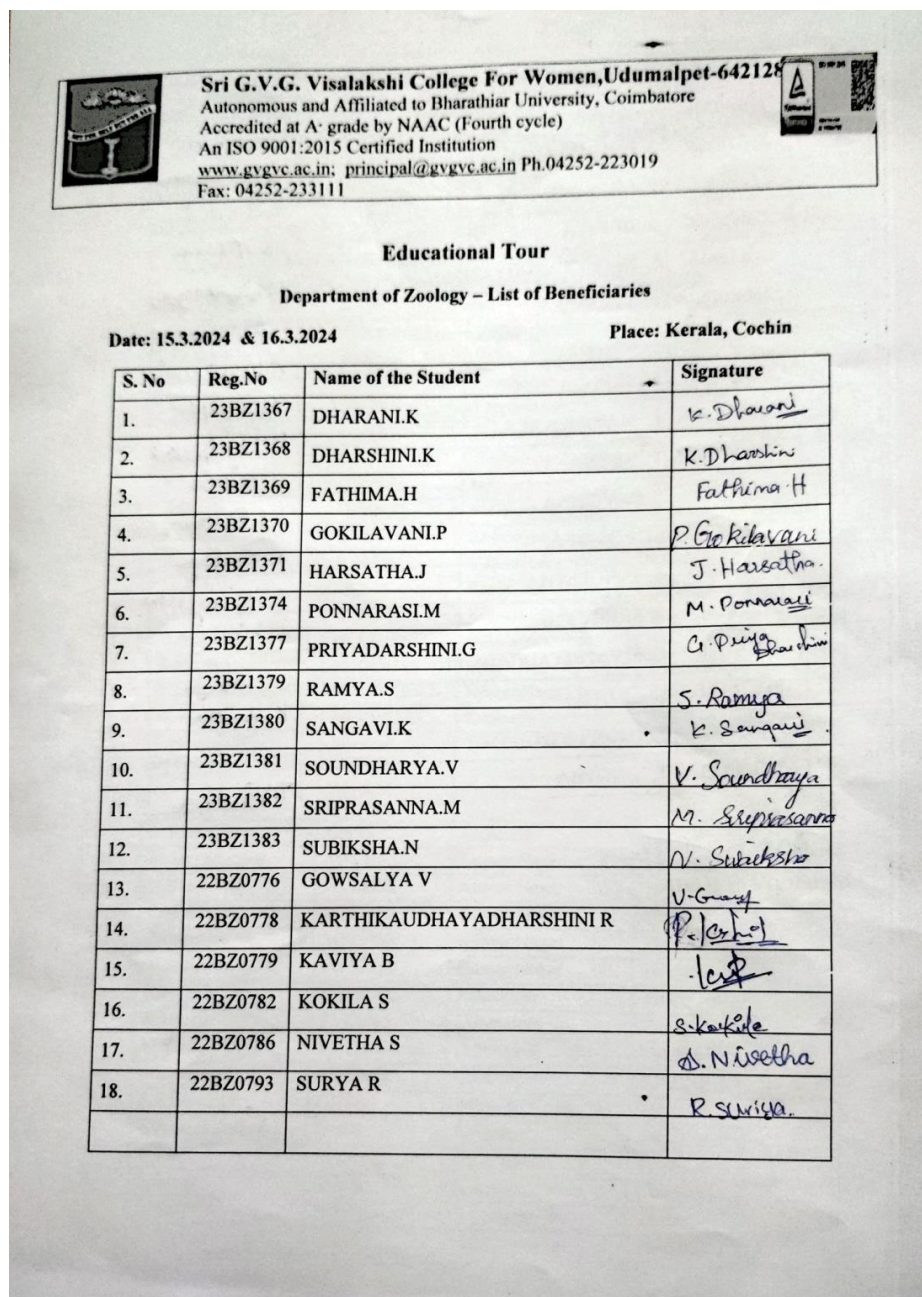 Sri G.V.G. Visalakshi College For Women,Udumalpet-642128
Autonomous and Affiliated to Bharathiar University, Coimbatore
Accredited at A+ grade by NAAC (Fourth cycle)
An ISO 9001:2015 Certified Institution
www.gvgvc.ac.in; principal@gvgvc.ac.in Ph.04252-223019
Fax: 04252-233111
Educational Tour
Department of Zoology – List of Beneficiaries
Date: 15.3.2024 & 16.3.2024 Place: Kerala, Cochin
S. No Reg.No Name of the Student Signature
1. 23BZ1367 DHARANI.K K.Dharani
2. 23BZ1368 DHARSHINI.K K.Dharshini
3. 23BZ1369 FATHIMA.H Fathima.H
4. 23BZ1370 GOKILAVANI.P P.Gokilavani
5. 23BZ1371 HARSATHA.J J.Harsatha.
6. 23BZ1374 PONNARASI.M M.Ponnarasi
7. 23BZ1377 PRIYADARSHINI.G G.Priya Dharshini
8. 23BZ1379 RAMYA.S S.Ramya
9. 23BZ1380 SANGAVI.K K.Sangavi.
10. 23BZ1381 SOUNDHARYA.V V.Soundharya
11. 23BZ1382 SRIPRASANNA.M M.Sriprasanna
12. 23BZ1383 SUBIKSHA.N N.Subiksha
13. 22BZ0776 GOWSALYA V
14. 22BZ0778 KARTHIKAUDHAYADHARSHINI R
15. 22BZ0779 KAVIYA B
16. 22BZ0782 KOKILA S S.Kokila
17. 22BZ0786 NIVETHA S S.Nivetha
18. 22BZ0793 SURYA R R.Suriya.